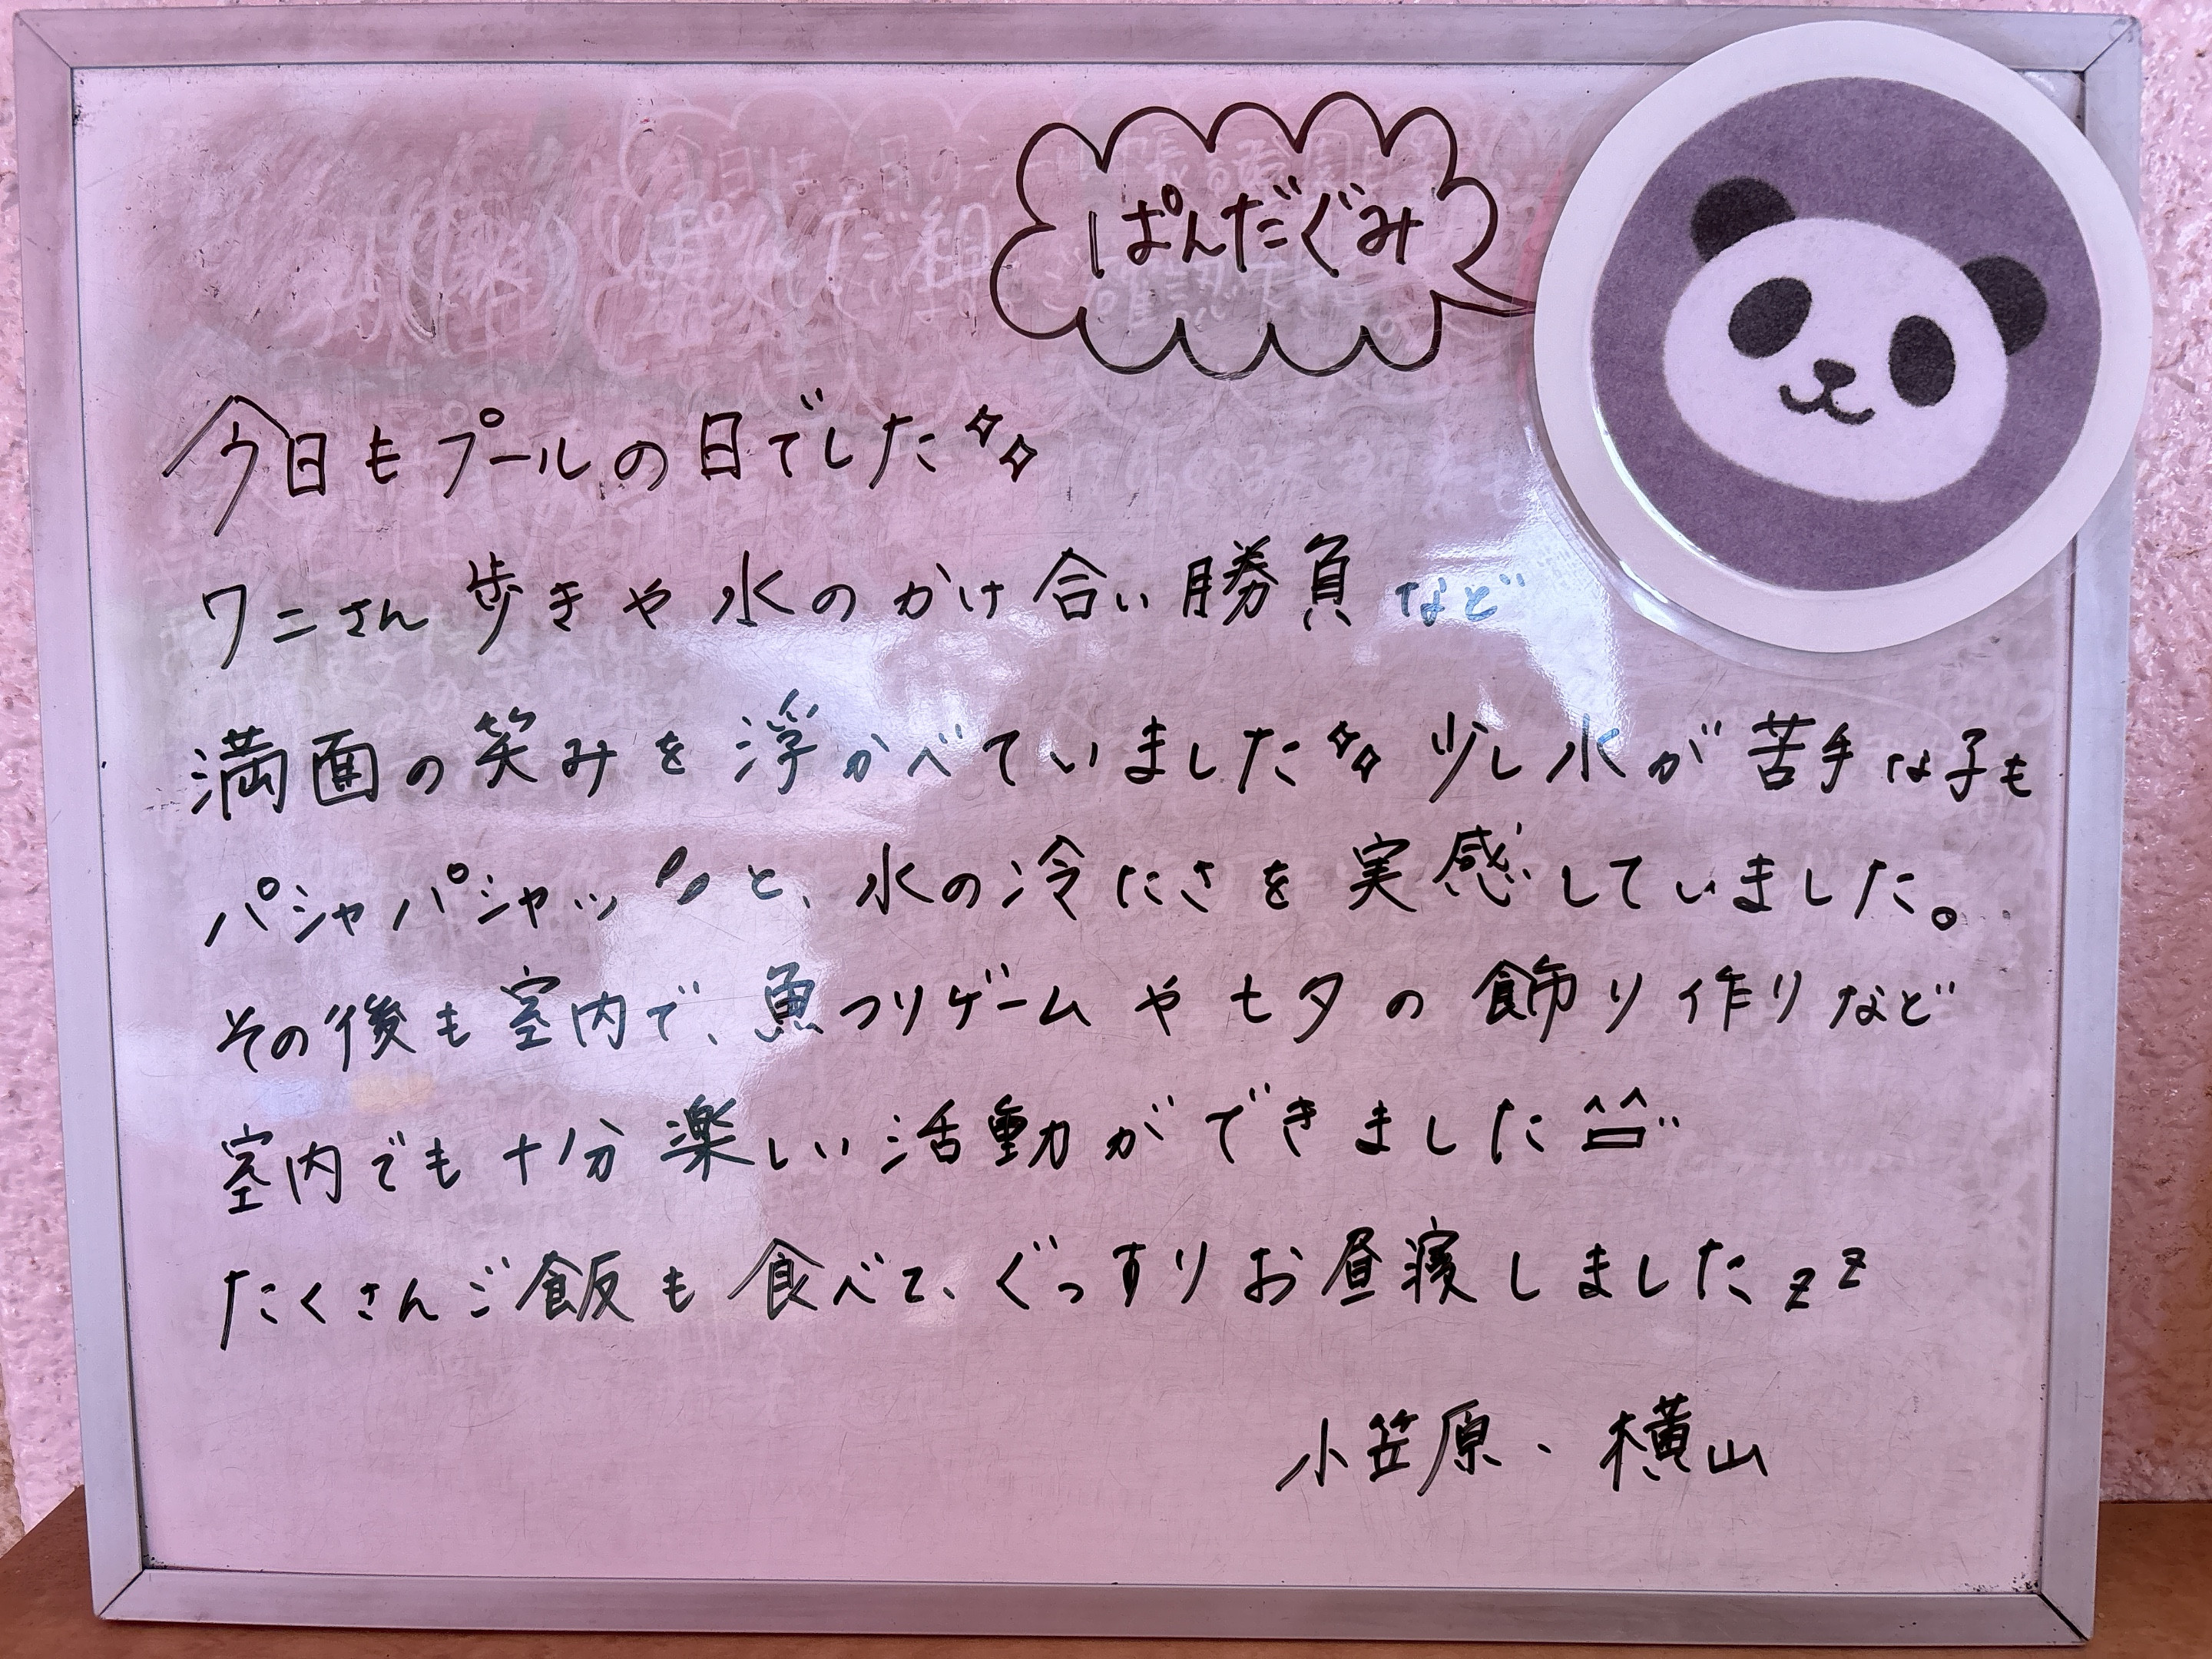 ぱんだぐみ
今日もプールの日でした
ワニさん歩きや水のかけ合い勝負など
満面の笑みを浮かべていました 少し水が苦手な子も
パシャパシャッと、水の冷たさを実感していました。
その後も室内で、魚つりゲームや七夕の飾り作りなど
室内でも十分楽しい活動ができました
たくさんご飯も食べて、ぐっすりお昼寝しましたzz
小笠原・横山